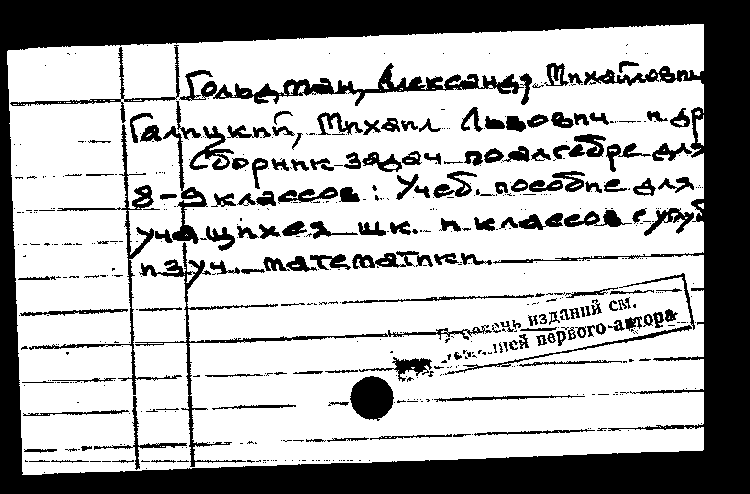 Гольдман, Александр Михайлович
Галицкий, Михаил Львович и др
Сборник задач по алгебре для
8-9 классов: Учеб. пособие для
учащихся шк. и классов с углуб
изуч. математики.
изданий см.
первого автора